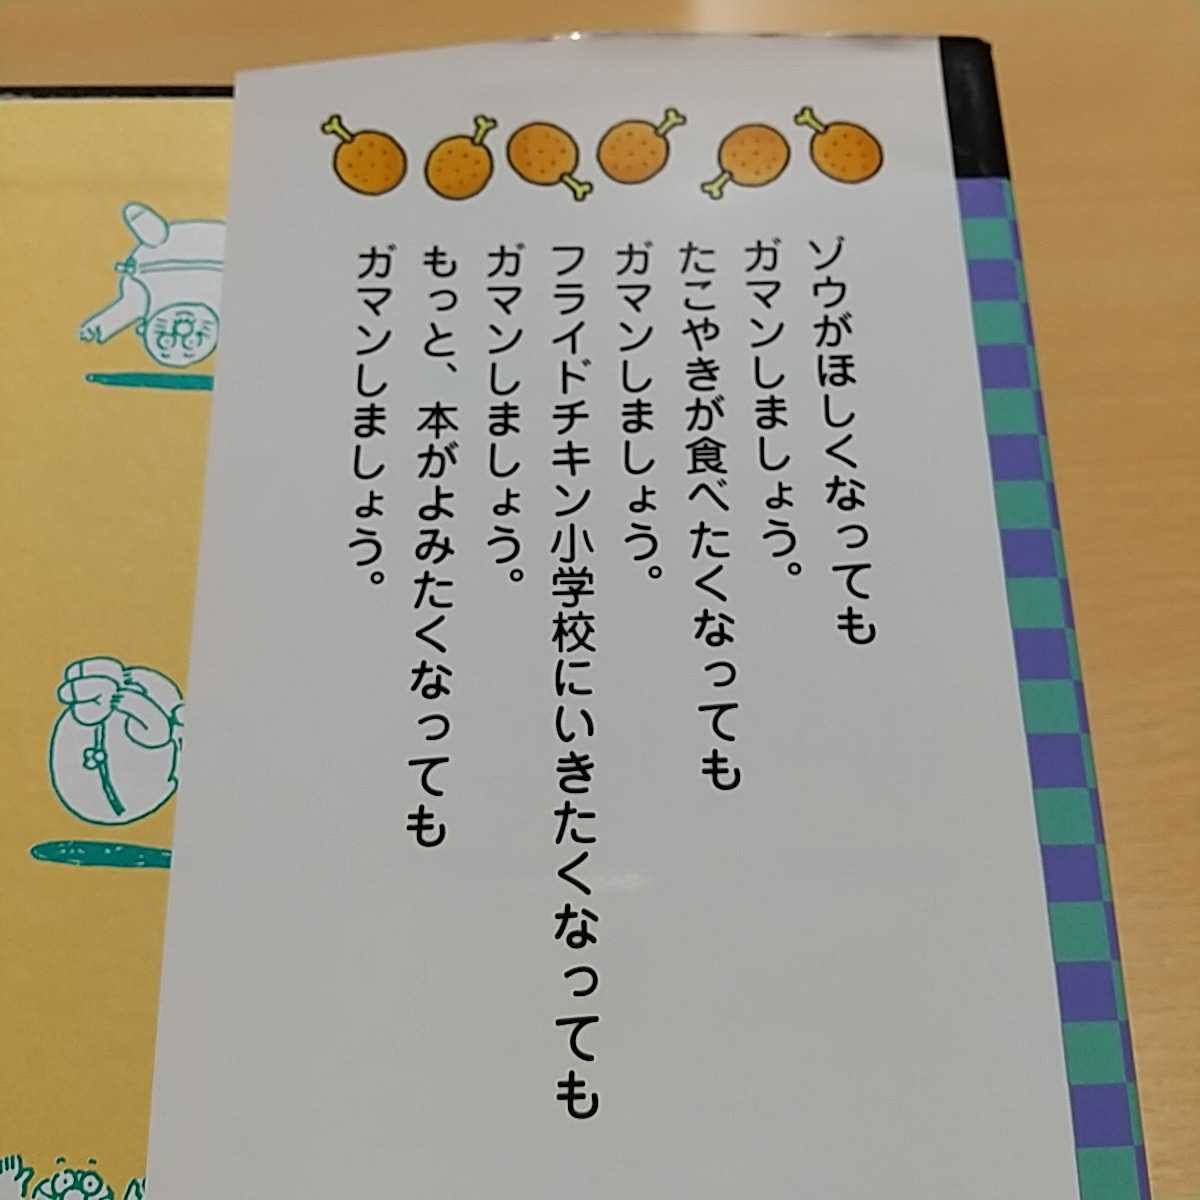 ゾウがほしくなっても
ガマンしましょう。
たこやきが食べたくなっても
ガマンしましょう。
フライドチキン小学校にいきたくなっても
ガマンしましょう。
もっと、本がよみたくなっても
ガマンしましょう。